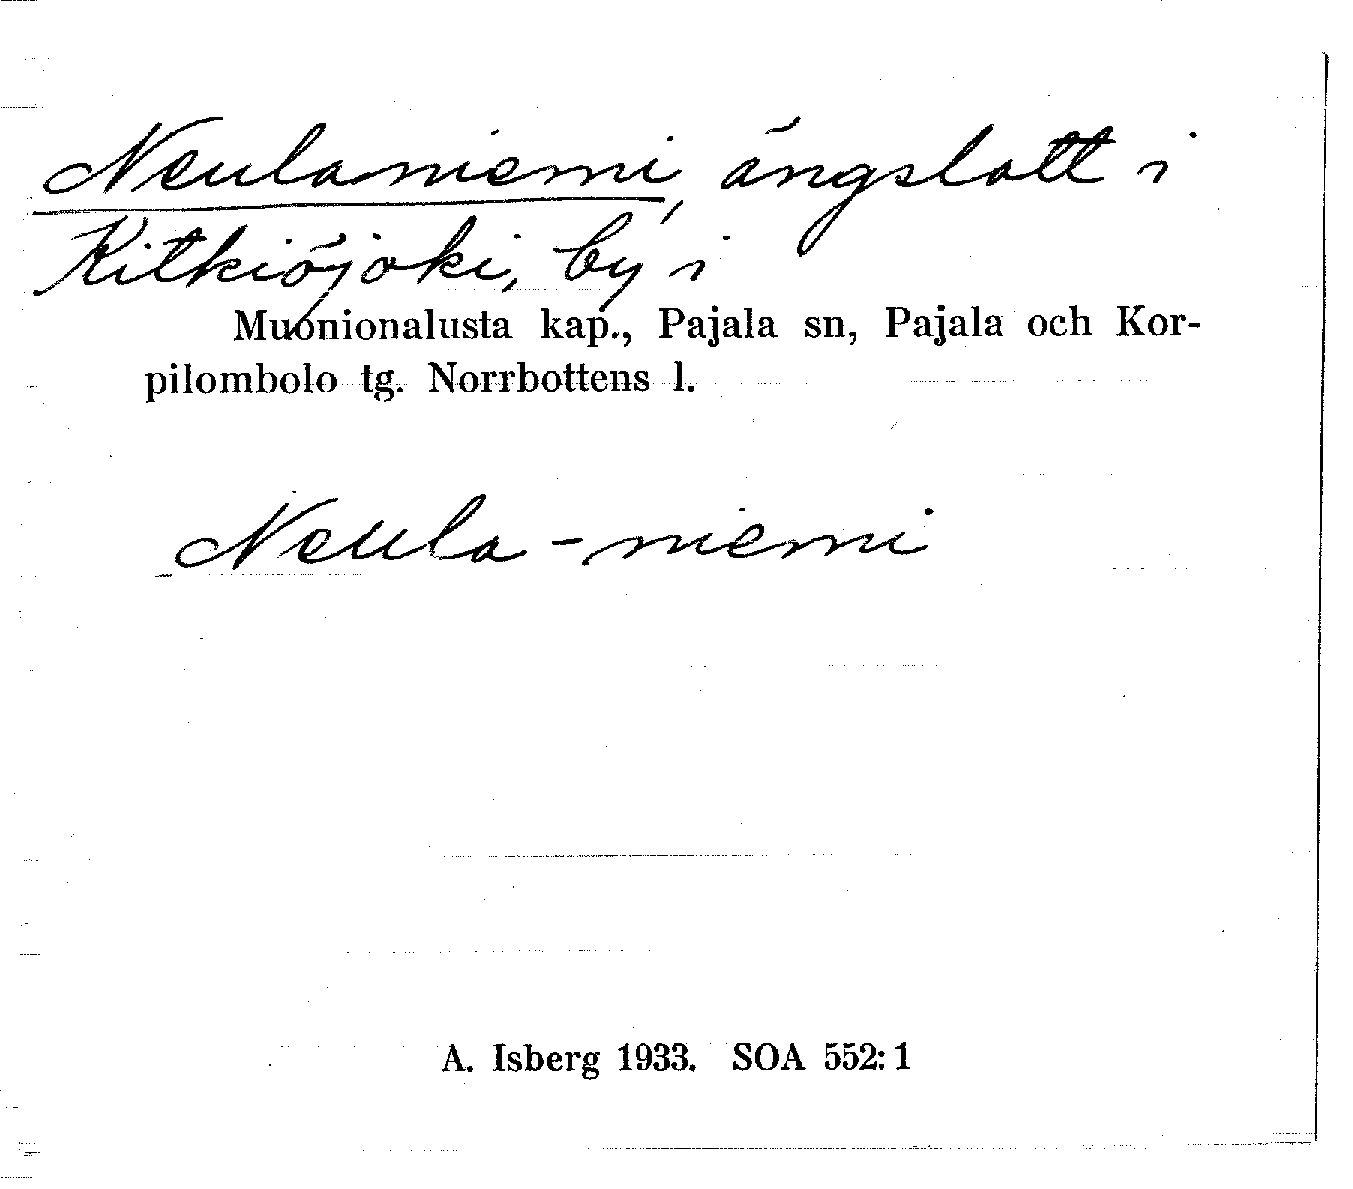 Neulaniemi, ängslott i
Kitkiöjoki, by i
Muonionalusta kap., Pajala sn, Pajala och Kor-
pilombolo tg. Norrbottens l.
Neula-niemi
A. Isberg 1933. SOA 552:1